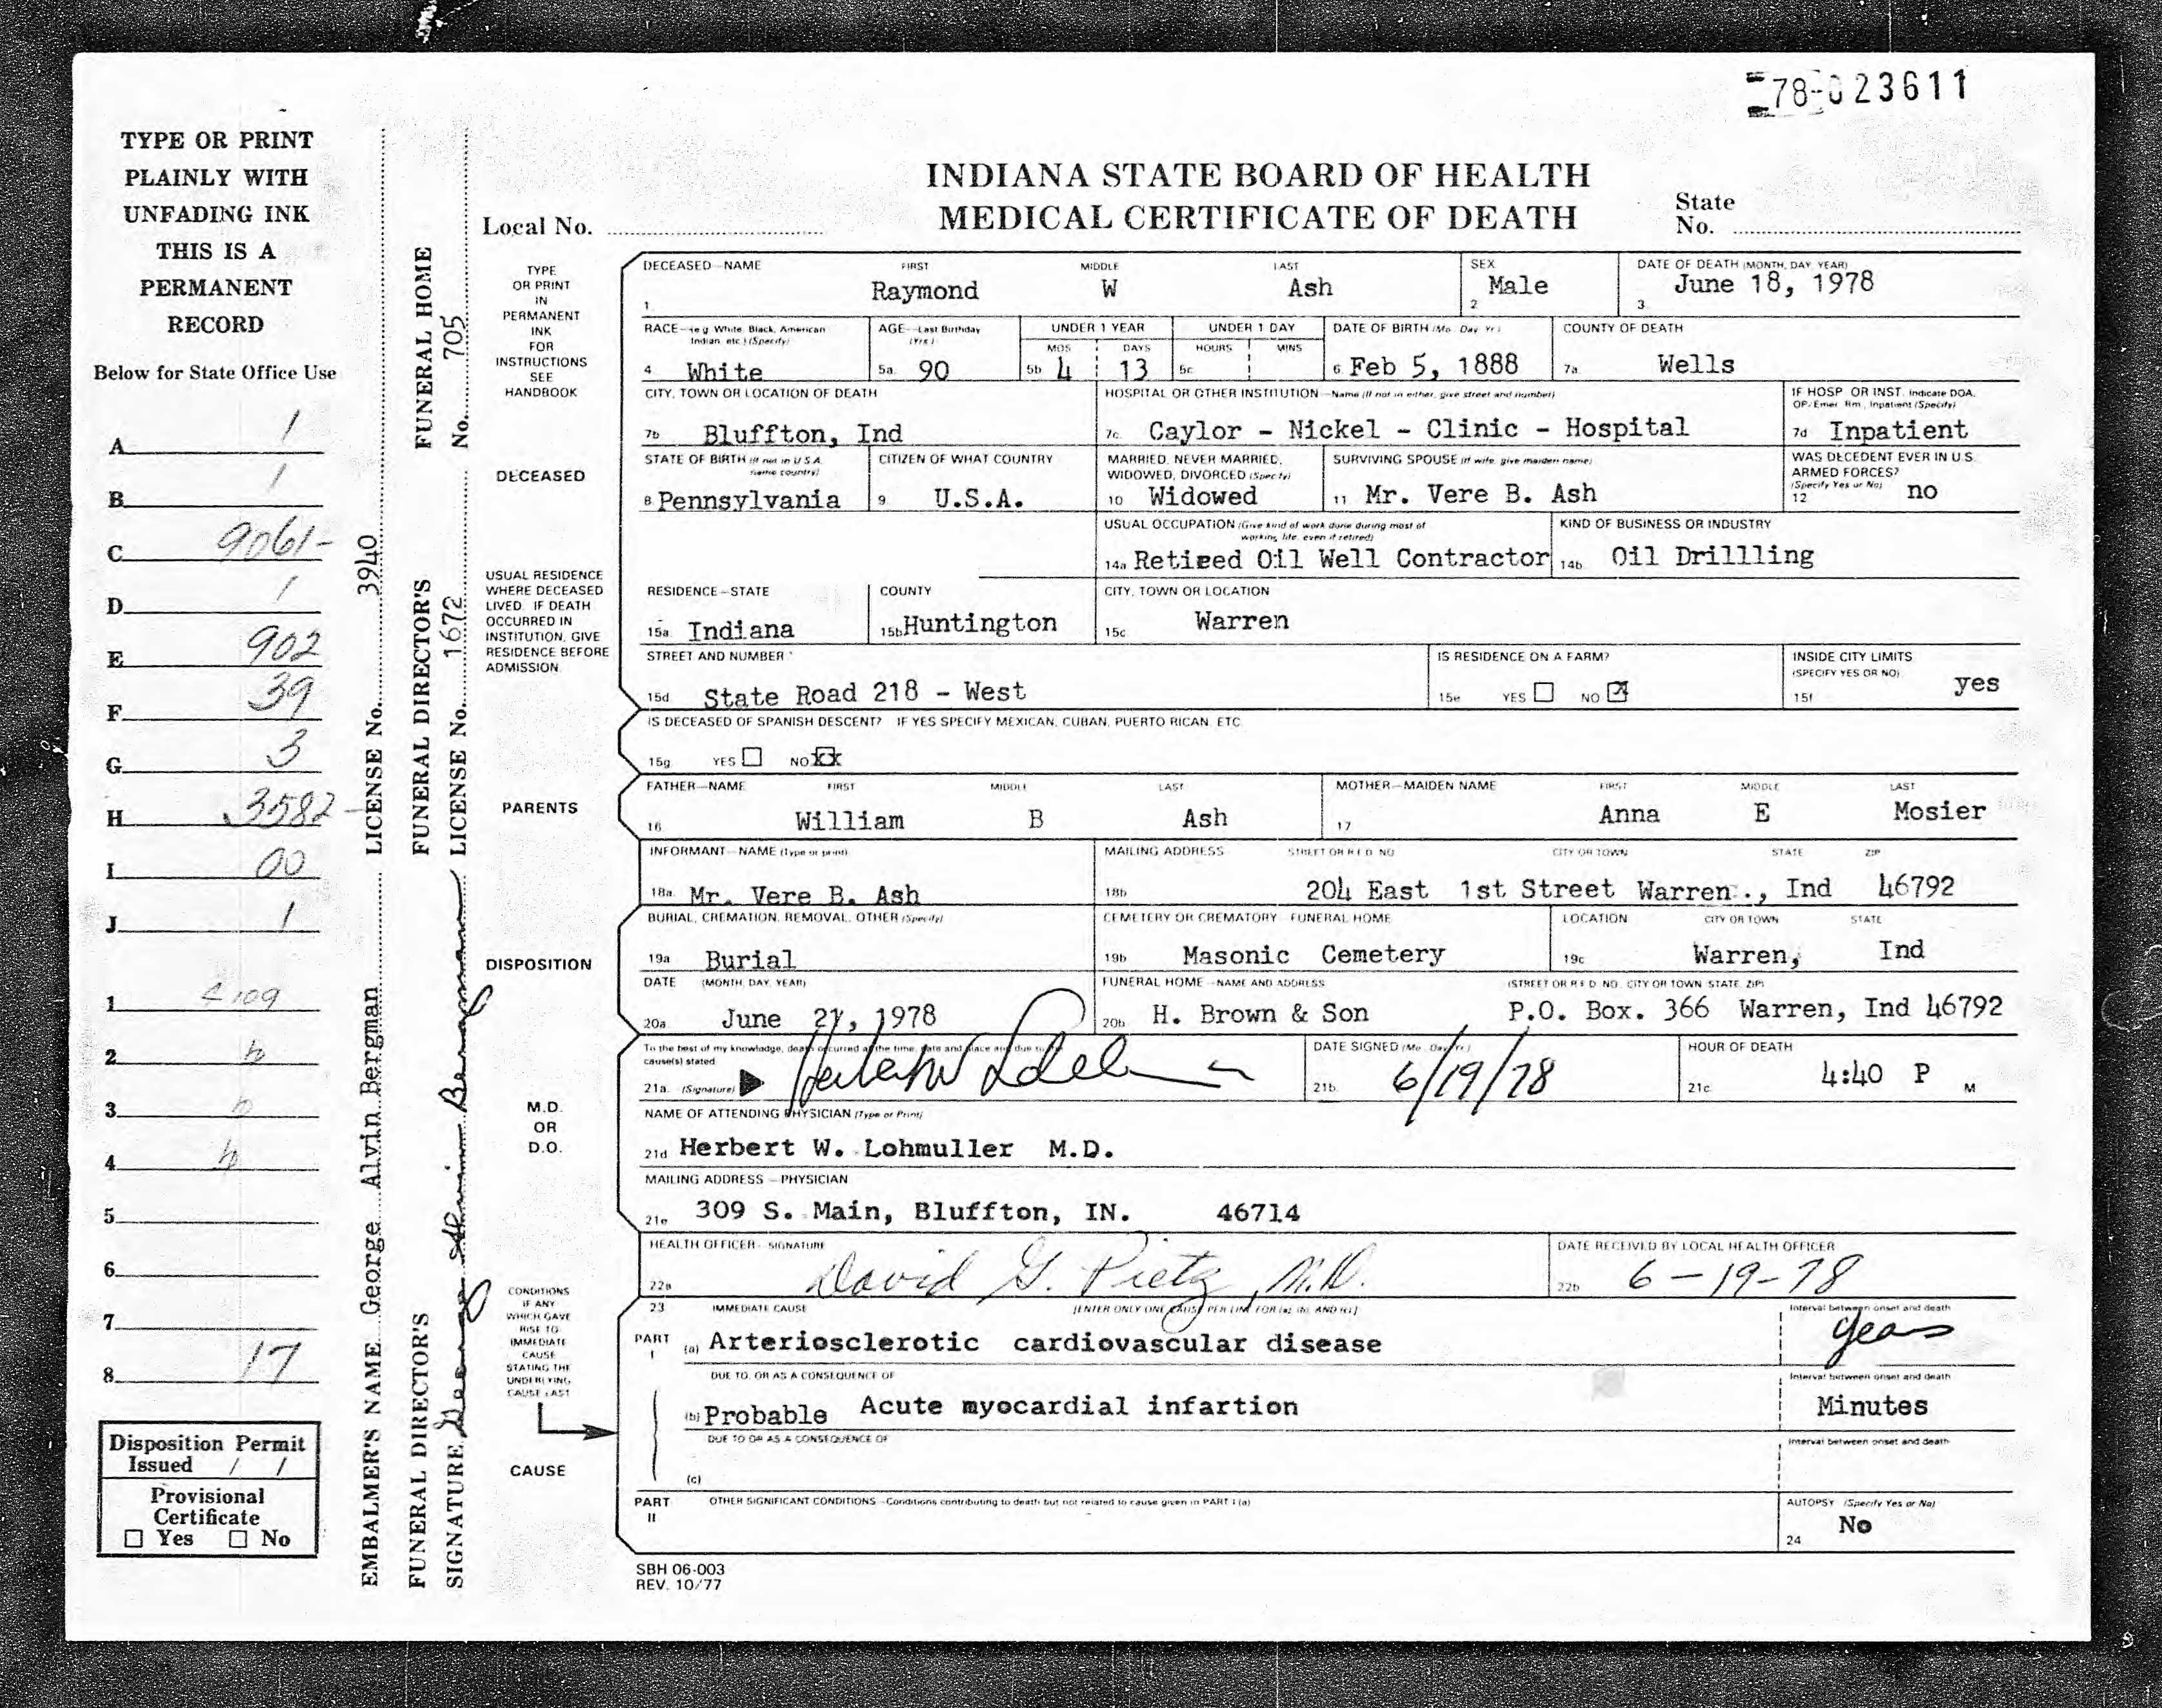 78-023611
TYPE OR PRINT
PLAINLY WITH
UNFADING INK
THIS IS A
PERMANENT
RECORD
Below for State Office Use
A 1
B 1
C 9061-
D 1
E 902
F 39
G 3
H 3582-
I 00
J 1
1 4109
2
3
4
5
6
7
8 17
Disposition Permit
Issued / /
Provisional
Certificate
☐ Yes ☐ No
EMBALMER'S NAME George Alvin Bergman LICENSE No. 3940
FUNERAL DIRECTOR'S FUNERAL DIRECTOR'S FUNERAL HOME
SIGNATURE George Alvin Bergman LICENSE No. 1672 No. 705
INDIANA STATE BOARD OF HEALTH
MEDICAL CERTIFICATE OF DEATH
Local No.
State
No.
TYPE
OR PRINT
IN
PERMANENT
INK
FOR
INSTRUCTIONS
SEE
HANDBOOK
DECEASED—NAME FIRST MIDDLE LAST SEX DATE OF DEATH (MONTH, DAY, YEAR)
1. Raymond W Ash 2 Male 3. June 18, 1978
RACE—(e.g. White, Black, American Indian, etc.) (Specify) AGE—Last Birthday (Yrs.) UNDER 1 YEAR UNDER 1 DAY DATE OF BIRTH (Mo. Day Yr.) COUNTY OF DEATH
MOS DAYS HOURS MINS
4. White 5a. 90 5b. 4 13 5c. 6. Feb 5, 1888 7a. Wells
CITY, TOWN OR LOCATION OF DEATH HOSPITAL OR OTHER INSTITUTION—Name (If not in either, give street and number) IF HOSP. OR INST. Indicate DOA, OP/Emer. Rm., Inpatient (Specify)
7b Bluffton, Ind 7c. Caylor - Nickel - Clinic - Hospital 7d Inpatient
DECEASED
STATE OF BIRTH (If not in U.S.A. name country) CITIZEN OF WHAT COUNTRY MARRIED, NEVER MARRIED, WIDOWED, DIVORCED (Specify) SURVIVING SPOUSE (If wife, give maiden name) WAS DECEDENT EVER IN U.S. ARMED FORCES? (Specify Yes or No)
8 Pennsylvania 9. U.S.A. 10 Widowed 11 Mr. Vere B. Ash 12 no
USUAL OCCUPATION (Give kind of work done during most of working life, even if retired) KIND OF BUSINESS OR INDUSTRY
14a Retired Oil Well Contractor 14b. Oil Drillling
USUAL RESIDENCE
WHERE DECEASED
LIVED. IF DEATH
OCCURRED IN
INSTITUTION, GIVE
RESIDENCE BEFORE
ADMISSION.
RESIDENCE—STATE COUNTY CITY, TOWN OR LOCATION
15a. Indiana 15b Huntington 15c Warren
STREET AND NUMBER IS RESIDENCE ON A FARM? INSIDE CITY LIMITS (SPECIFY YES OR NO)
15d State Road 218 - West 15e YES ☐ NO ☒ 15f yes
IS DECEASED OF SPANISH DESCENT? IF YES SPECIFY MEXICAN, CUBAN, PUERTO RICAN, ETC.
15g. YES ☐ NO XX
PARENTS
FATHER—NAME FIRST MIDDLE LAST MOTHER—MAIDEN NAME FIRST MIDDLE LAST
16 William B Ash 17 Anna E Mosier
INFORMANT—NAME (Type or print) MAILING ADDRESS STREET OR R.F.D. NO. CITY OR TOWN STATE ZIP
18a. Mr. Vere B. Ash 18b 204 East 1st Street Warren., Ind 46792
DISPOSITION
BURIAL, CREMATION, REMOVAL, OTHER (Specify) CEMETERY OR CREMATORY FUNERAL HOME LOCATION CITY OR TOWN STATE
19a Burial 19b Masonic Cemetery 19c Warren, Ind
DATE (MONTH, DAY, YEAR) FUNERAL HOME—NAME AND ADDRESS (STREET OR R.F.D. NO., CITY OR TOWN, STATE, ZIP)
20a. June 21, 1978 20b H. Brown & Son P.O. Box. 366 Warren, Ind 46792
M.D.
OR
D.O.
To the best of my knowledge, death occurred at the time, date and place and due to the cause(s) stated DATE SIGNED (Mo., Day, Yr.) HOUR OF DEATH
21a. (Signature) 21b. 6/19/78 21c. 4:40 P M
NAME OF ATTENDING PHYSICIAN (Type or Print)
21d Herbert W. Lohmuller M.D.
MAILING ADDRESS—PHYSICIAN
21e 309 S. Main, Bluffton, IN. 46714
HEALTH OFFICER—SIGNATURE DATE RECEIVED BY LOCAL HEALTH OFFICER
22a David G. Pietz, M.D. 22b 6-19-78
CONDITIONS
IF ANY
WHICH GAVE
RISE TO
IMMEDIATE
CAUSE
STATING THE
UNDERLYING
CAUSE LAST
CAUSE
23 IMMEDIATE CAUSE [ENTER ONLY ONE CAUSE PER LINE FOR (a), (b), AND (c)] Interval between onset and death
PART I (a) Arteriosclerotic cardiovascular disease years
DUE TO, OR AS A CONSEQUENCE OF Interval between onset and death
(b) Probable Acute myocardial infartion Minutes
DUE TO OR AS A CONSEQUENCE OF Interval between onset and death
(c)
PART II OTHER SIGNIFICANT CONDITIONS—Conditions contributing to death but not related to cause given in PART I (a) AUTOPSY (Specify Yes or No)
24 No
SBH 06-003
REV. 10/77